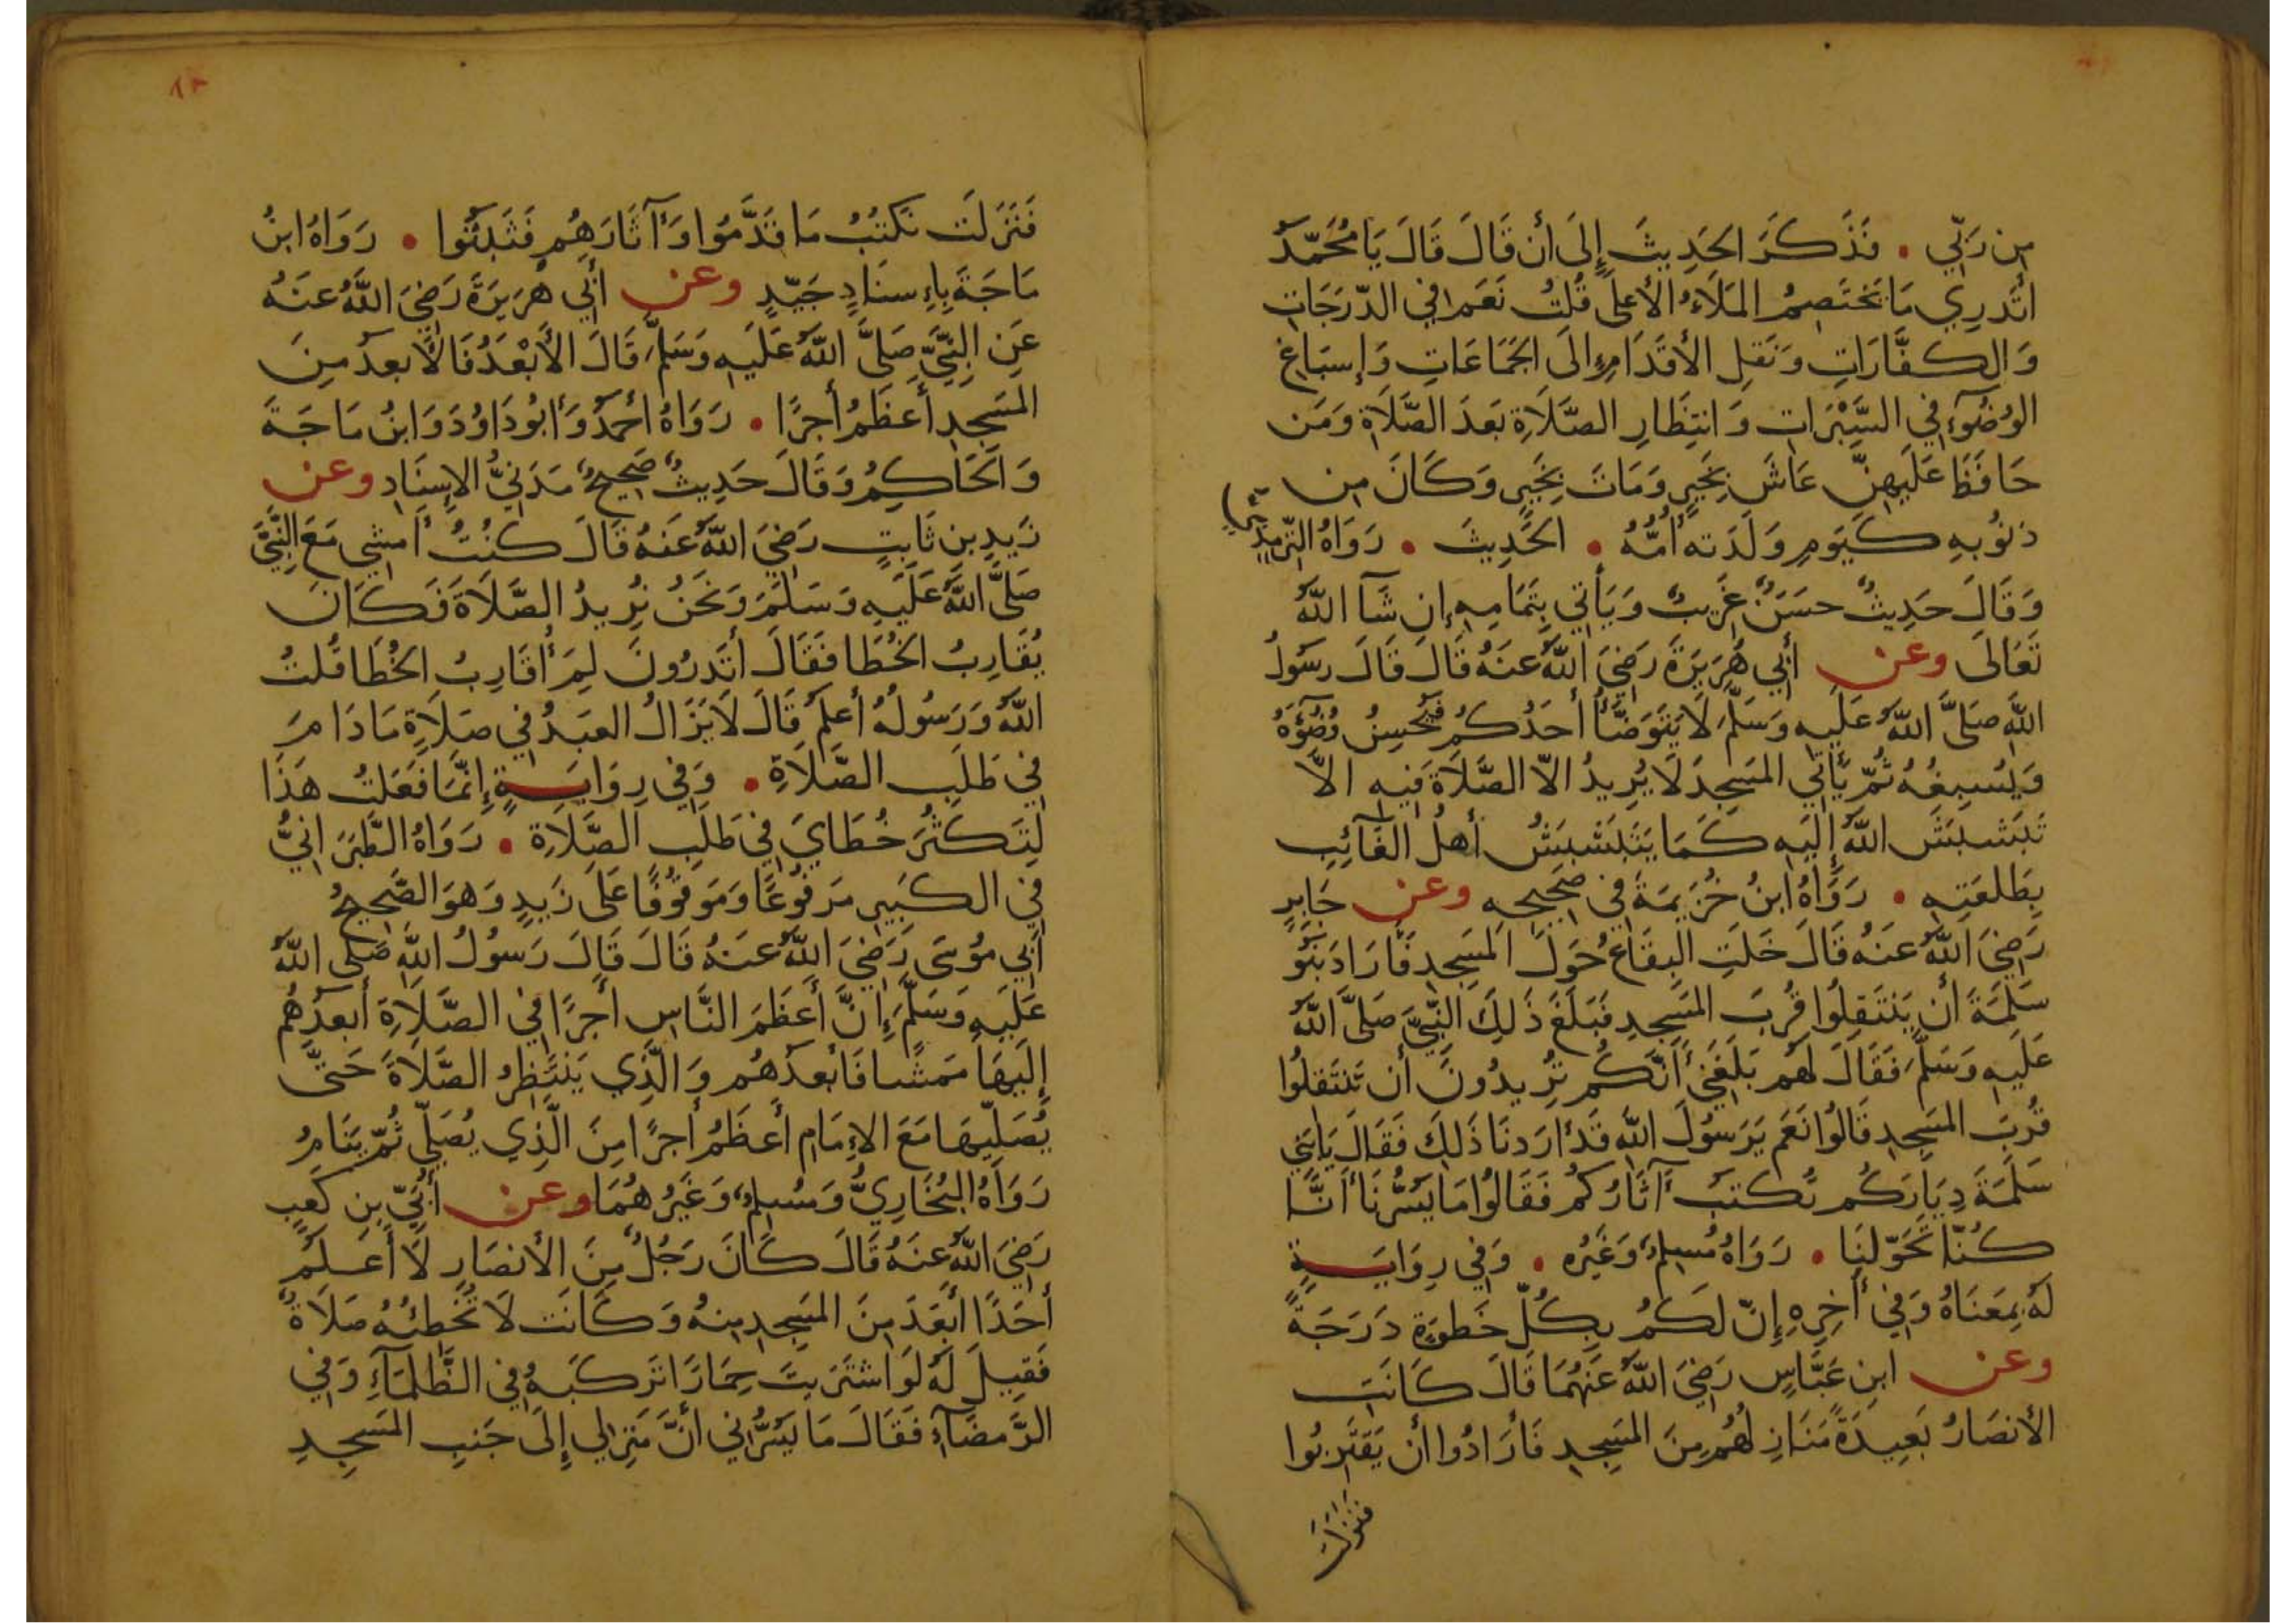 مِن رَبِّي . فَذَكَرَ الحَدِيثَ إِلَى أن قَالَ قَالَ يَا مُحَمَّدُ
أتَدرِي مَا يَختَصِمُ المَلَاءُ الأعلَى قُلتُ نَعَم في الدَّرَجَاتِ
وَالكَفَّارَاتِ وَنَقلِ الأقدَامِ إلَى الجَمَاعَاتِ وَإسبَاغِ
الوُضُوءِ في السَّبْرَاتِ وَانتِظَارِ الصَّلَاةِ بَعدَ الصَّلَاةِ وَمَن
حَافَظَ عَلَيهِنَّ عَاشَ بِخَيرٍ وَمَاتَ بِخَيرٍ وَكَانَ مِن
ذنُوبِهِ كَيَومِ وَلَدَته أُمُّهُ . الحَدِيثَ . رَوَاهُ التِّرمِذِيُّ
وَقَالَ حَدِيثٌ حسَنٌ غَرِيبٌ وَيَأتي بِتَمَامِهِ إن شَآ اللَّهُ
تَعَالَى وعن أبي هُرَيرَةَ رَضِيَ اللَّهُ عنَهُ قَالَ قَالَ رسُولُ
اللَّهِ صَلَّى اللَّهُ عَلَيهِ وسَلَّمَ لَا يَتَوَضَّأُ أحَدُكُم فَيُحسِنُ وُضُوَءَهُ
وَيُسبِغُهُ ثُمَّ يَأتي المَسجِدَ لَا يُرِيدُ الاّ الصَّلَاةَ فِيهِ الاَّ
تَبَشبَشَ اللَّهُ إلَيهِ كَمَا يَتَبَشبَشُ أهلُ الغَآئِبِ
بِطَلعَتِهِ . رَوَاهُ ابنُ خُزَيمَةَ في صَحِيحِهِ وعن جَابِرٍ
رَضِيَ اللَّهُ عنَهُ قَالَ خَلَتِ البِقَاعُ حَولَ المَسجِدِ فَأرَادَ بَنُو
سَلِمَةَ أن يَنتَقِلُوا قُربَ المَسجِدِ فَبَلَغَ ذَلِكَ النَّبِيَّ صَلَّى اللَّهُ
عَلَيهِ وسَلَّمَ فَقَالَ لهُم بَلَغَنِي أنَّكُم تُرِيدُونَ أن تَنتَقِلُوا
قُربَ المَسجِدِ قَالُوا نَعَم يَرَسُولَ اللَّهِ قَد أرَدنَا ذَلِكَ فَقَالَ يَابَنِي
سَلَمَةَ دِيَارَكُم تُكتَبُ آثَارُكُم فَقَالُوا مَا يَسُرُّنَا أنَّا
كُنَّا تَحَوَّلنَا . رَوَاهُ مُسلِمٌ وَغَيرُه . وَفي رِوَايَةٍ
لَهُ بِمَعنَاهُ وَفي أخِرِهِ إنَّ لَكُم بِكُلِّ خَطوَةٍ دَرَجَةً
وعن ابنِ عَبَّاسٍ رَضِيَ اللَّهُ عَنهُمَا قَالَ كَانَت
الأنصَارُ بَعِيدَةً مَنَازِلُهُم مِنَ المَسجِدِ فَأرَادُوا أن يَقتَرِبُوا
فنزلت
١٢
فَنَزَلَت نَكتُبُ مَا قَدَّمُوا وَآثَارَهُم فَثَبَتُوا . رَوَاهُ ابنُ
مَاجَةَ بِإِسنَادٍ جَيِّدٍ وعن أبي هُرَيرَةَ رَضِيَ اللَّهُ عنَهُ
عَنِ النَّبِيِّ صَلَّى اللَّهُ عَلَيهِ وَسَلَّمَ قَالَ الأبْعَدُ فَالأبعدُ مِنَ
المَسجِدِ أعظَمُ أجرًا . رَوَاهُ أحمَدُ وَأبُو دَاوُدَ وَابنُ مَاجَةَ
وَالحَاكِمُ وَقَالَ حَدِيثٌ صَحِيحٌ مَدَنيُّ الإسنَادِ وعن
زَيدِ بنِ ثَابِتٍ رَضِيَ اللَّهُ عَنهُ قَالَ كنتُ أمشِي مَعَ النَّبِيِّ
صَلَّى اللَّهُ عَلَيهِ وَسَلَّمَ وَنَحنُ نُرِيدُ الصَّلَاةَ فَكَانَ
يُقَارِبُ الخُطَا فَقَالَ أتَدرُونَ لِمَ أُقَارِبُ الخُطَا قُلتُ
اللَّهُ وَرَسُولُهُ أعلَمُ قَالَ لَا يَزَالُ العَبدُ في صَلَاةٍ مَا دَامَ
في طَلَبِ الصَّلَاةِ . وَفي رِوَايَةٍ إنَّمَا فَعَلتُ هَذَا
لِتَكثُرَ خُطَايَ في طَلَبِ الصَّلَاةِ . رَوَاهُ الطَّبَرَانيُّ
في الكَبِيرِ مَرفُوعًا وَمَوقُوفًا عَلَى زَيدٍ وَهوَ الصَّحِيحُ
أبي مُوسَى رَضِيَ اللَّهُ عنَهُ قَالَ قَالَ رَسُولُ اللَّهِ صَلى اللَّهُ
عَلَيهِ وَسَلَّمَ إنَّ أعظَمَ النَّاسِ أجرًا في الصَّلَاةِ أبعدُهُم
إلَيهَا مَمشًا فَأبعدُهُم وَالَّذِي يَنتَظِرُ الصَّلَاةَ حَتَّى
يُصَلِّيهَا مَعَ الإمَامِ أعظَمُ أجرًا مِنَ الَّذِي يُصَلِّي ثُمَّ يَنَامُ
رَوَاهُ البُخَارِيُّ وَمُسلِمٌ وَغَيرُهُمَا وعن أُبَيِّ بنِ كَعبٍ
رَضِيَ اللَّهُ عنَهُ قَالَ كَانَ رَجُلٌ مِنَ الأنصَارِ لَا أعلَمُ
أحَدًا أبعَدَ مِنَ المَسجِدِ مِنهُ وَكَانَت لَا تُخطِئُهُ صَلَاةٌ
فَقِيلَ لَهُ لَوِ اشتَرَيتَ حِمَارًا تَركَبُهُ في الظَّلمَآءِ وَفي
الرَّمضَآءِ فَقَالَ مَا يَسُرُّني أنَّ مَنزِلي إلَى جَنبِ المَسجِدِ